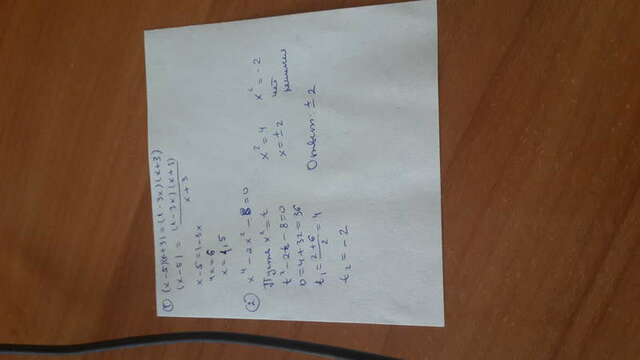 ① (x-5)(x+3) = (1-3x)(x+3)
(x-5) = (1-3x)(x+3) / x+3
x-5 = 1-3x
4x = 6
x = 1,5
② x⁴ - 2x² - 8 = 0
Пусть x² = t
t² - 2t - 8 = 0
D = 4 + 32 = 36
t₁ = 2+6 / 2 = 4
t₂ = -2
x² = 4
x = ± 2
x² = -2
нет
решения
Ответ: ± 2